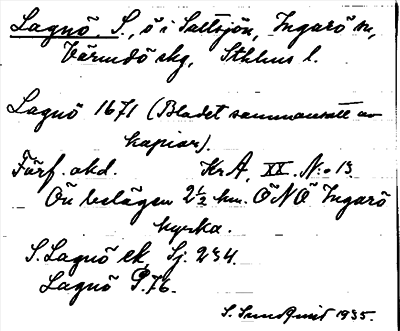 Lagnö S., ö i Saltsjön, Ingarö sn,
Värmdö skg, Sthlms l.
Lagnö 1671 (Bladet sammansatt av
kopior).
Förf. okd. KrA, XX. N:o 13.
Ön belägen 2½ km. ÖNÖ Ingarö
kyrka.
S. Lagnö ek. Sj. 234.
Lagnö P. 76.
S. Sundquist 1935.